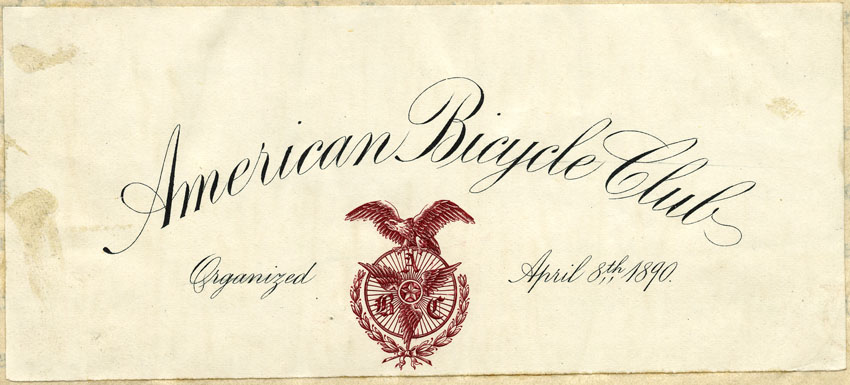 American Bicycle Club
Organized April 8th 1890.
A
B C